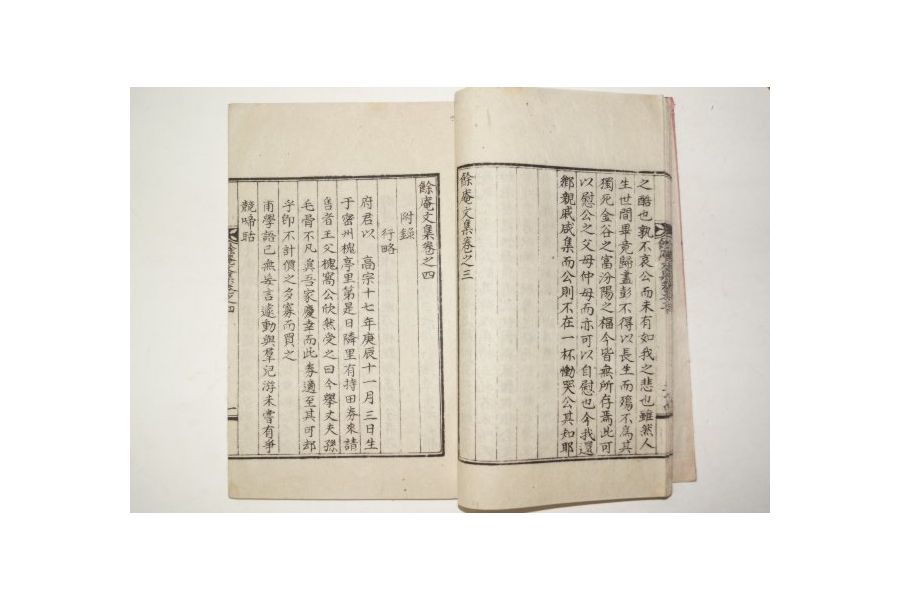 之酷也孰不哀公而未有如我之悲也雖然人
生世間畢竟歸盡彭不得以長生而殤不爲其
獨死金谷之富汾陽之福今皆無所存焉此可
以慰公之父母仲母而亦可以自慰也今我還
鄕親戚咸集而公則不在一杯慟哭公其知耶
餘庵文集卷之三
餘庵文集卷之四
附錄
行略
府君以 高宗十七年庚辰十一月三日生
于密州槐亭里第是日隣里有持田券來請
售者王父槐窩公欣然受之曰今擧丈夫孫
毛骨不凡眞吾家慶幸而此券適至其可却
乎卽不計價之多寡而買之
甫學語已無妄言遽動與羣兒游未嘗有爭
競啼詬